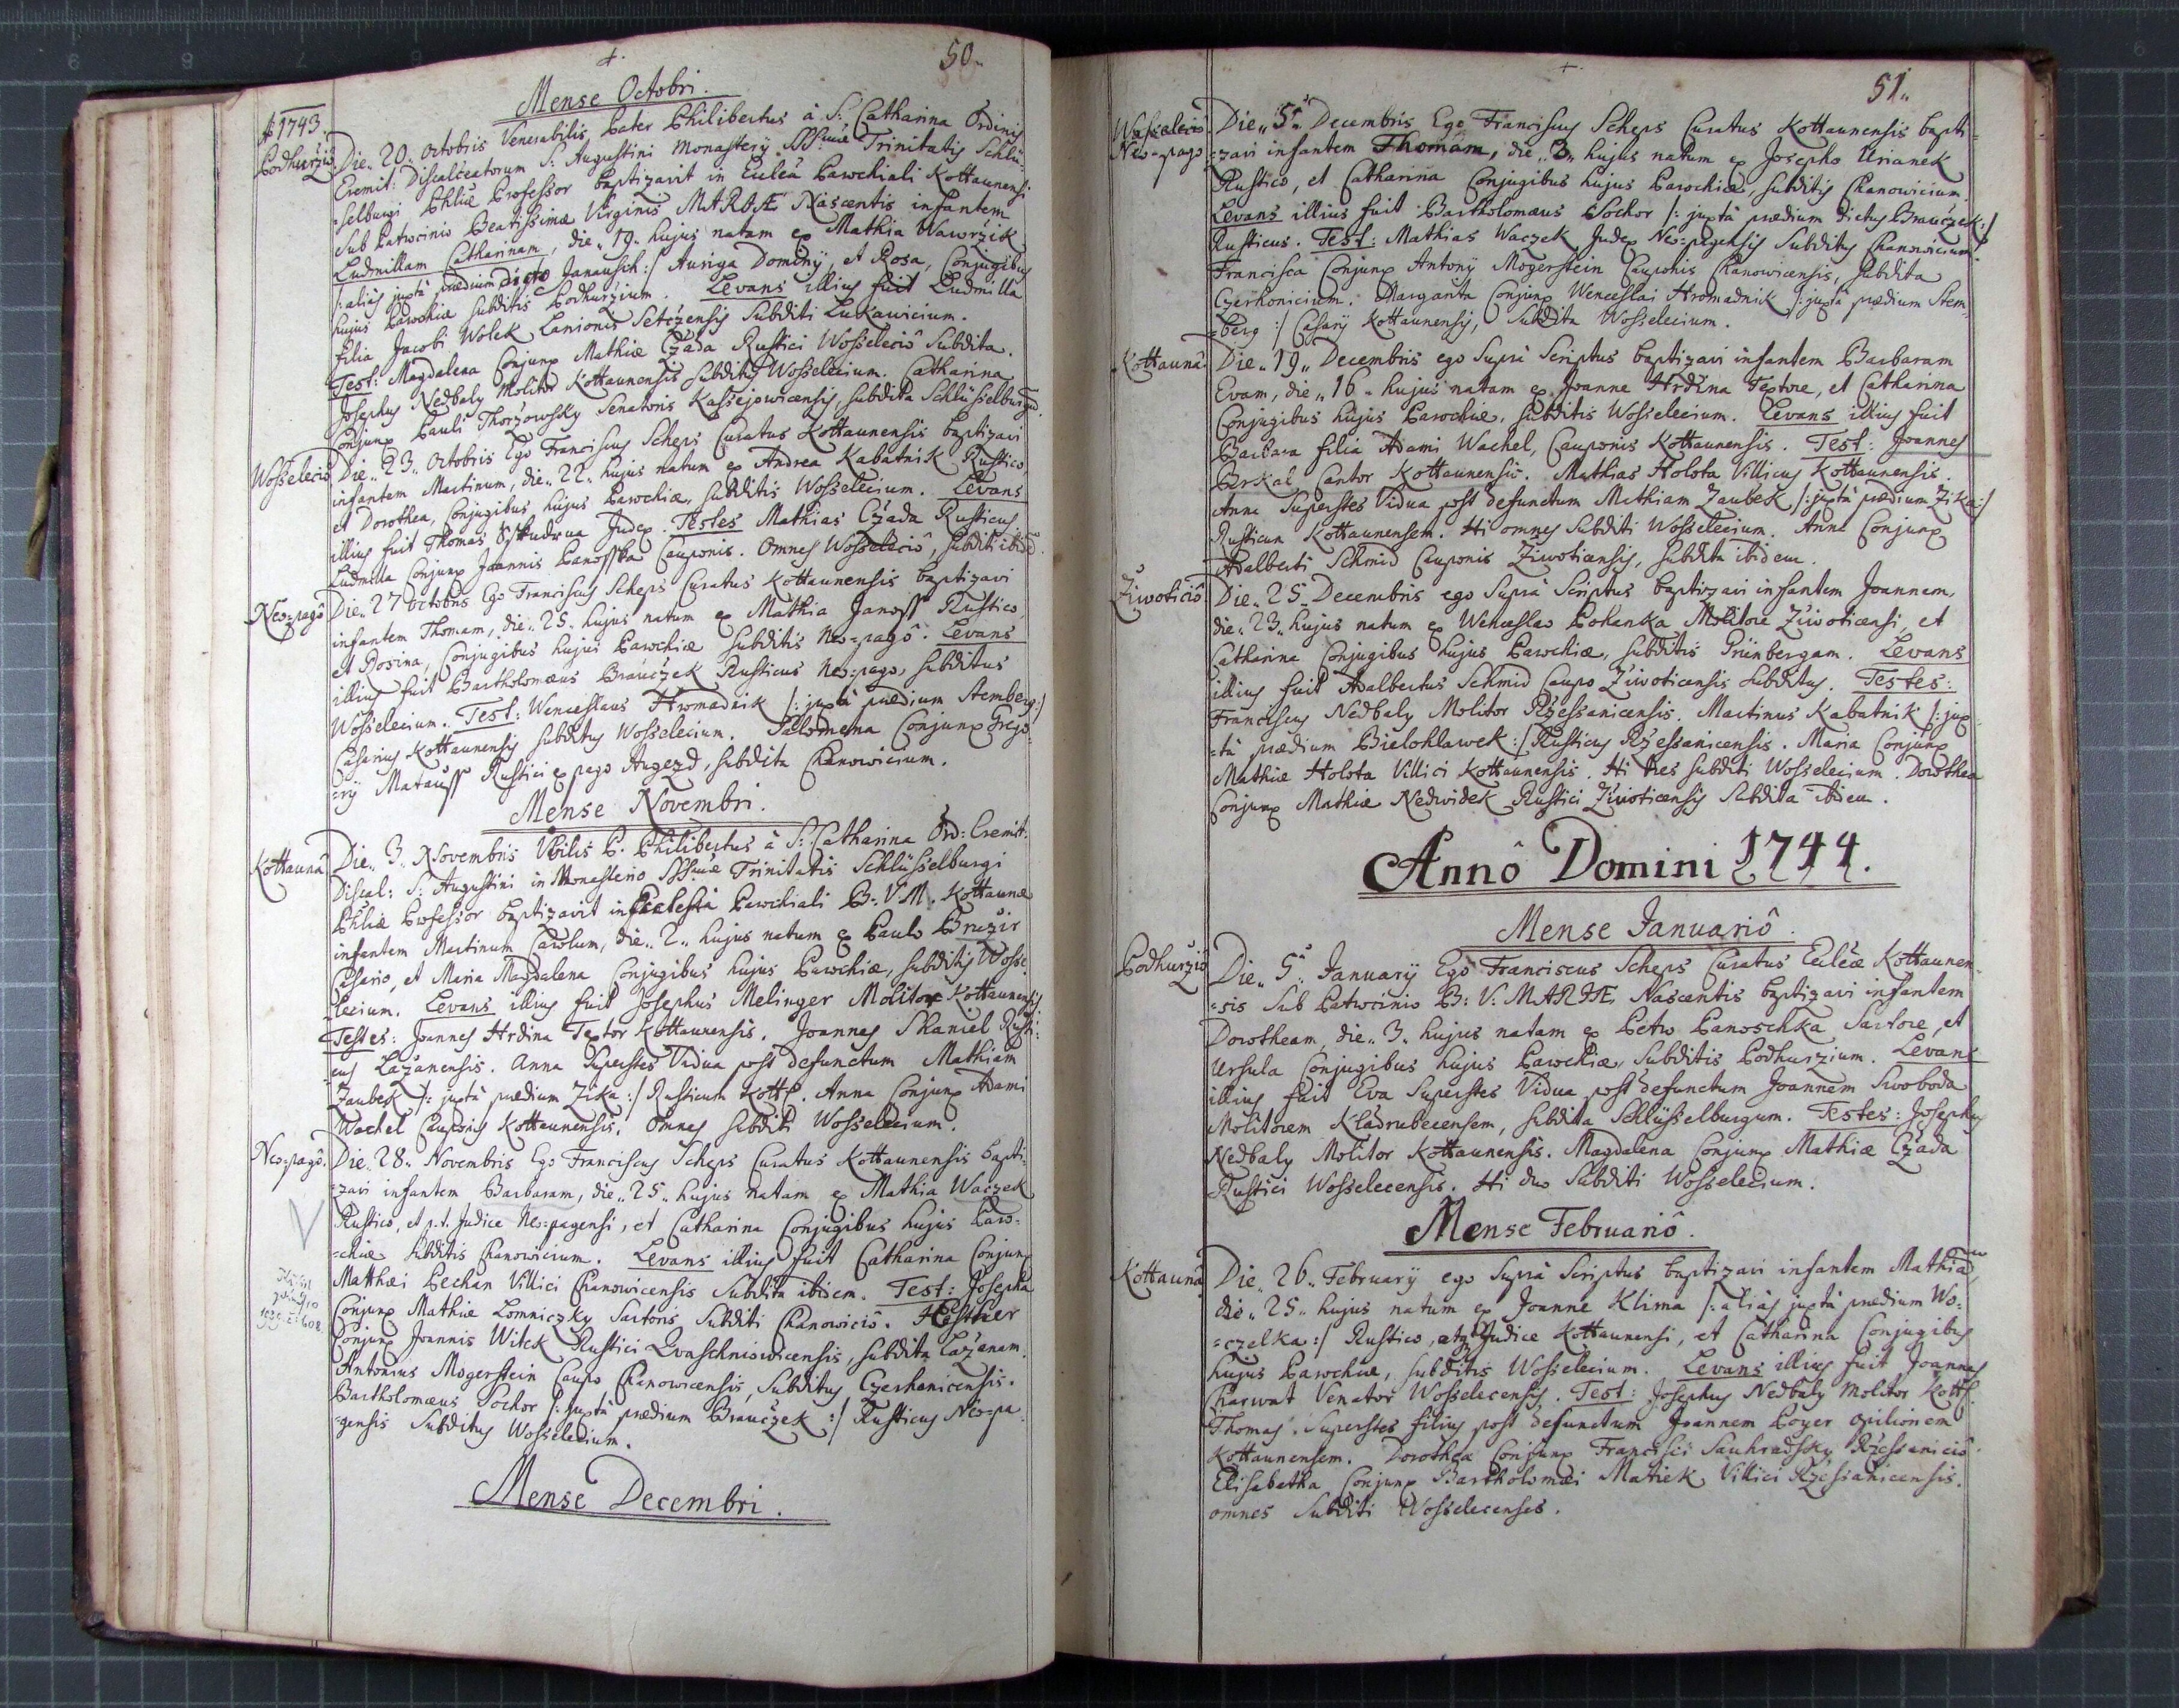 50.
Mense Octobri.
A 1743.
Podhurzio
Die 20. Octobris Venerabilis Pater Philibertus à S: Catharina Ordinis
Eremit: Discalceatorum S: Augustini Monastery SS:mae Trinitatis Schlü-
=selburgi Phliae Professor baptizavit in Ecclea Parochiali Kottaunensi
sub Patrocinio Beatissimae Virginis MARIAE Nascentis infantem
Ludmillam Catharinam, die 19. hujus natam ex Mathia Wawržik
/: aliàs juxtà praedium dicto Janausch :/ Auriga Dominy, et Rosa, Conjugibus
hujus Parochiae subditis Podhurzium. Levans illius fuit Ludmilla
filia Jacobi Wolek Lanionis Setczensis Subditi Lukawicium.
Test: Magdalena Conjunx Mathiae Czada Rustici Wosselecio Subdita.
Josephus Nedbaly Molitor Kottaunensis Subditus Wosselecium. Catharina
Conjunx Pauli Thoržowsky Senatoris Kassejowicensis, subdita Schlüsselburgum.
Wosselecio
Die 23. Octobris Ego Franciscus Scheps Curatus Kottaunensis baptizavi
infantem Martinum, die 22. hujus natum ex Andrea Kabatnik Rustico
et Dorothea, Conjugibus hujus Parochiae, subditis Wosselecium. Levans
illius fuit Thomas Judex. Testes Mathias Czada Rusticus.
Ludmilla Conjunx Joannis Panosska Cauponis. Omnes Wosselecio, subditi ibid.
Neo=pago
Die 27 Octobris Ego Franciscus Scheps Curatus Kottaunensis baptizavi
infantem Thomam, die 25. hujus natum ex Mathia Janoss Rustico,
et Rosina, Conjugibus hujus Parochiae subditis Neo=pago. Levans
illius fuit Bartholomaeus Brauczek Rusticus Neo=pago, subditus
Wosselecium. Test: Wenceslaus Hromadnik /: juxtà praedium Stemberg :/
Casarius Kottaunensis subditus Wosselecium. Salomena Conjunx Grego=
=ry Matauss Rustici ex pago Augezd, subdita Chanowicium.
Mense Novembri.
Kottauna
Die 3. Novembris Vbilis P. Philibertus à S: Catharina Ord: Eremit:
Discal: S: Augustini in Monasterio SS:mae Trinitatis Schlüsselburgi
Phliae Professor baptizavit in Ecclesia Parochiali B: V: M. Kottaunae
infantem Martinum Carolum, die 2. hujus natum ex Paulo Bružir
Casario, et Maria Magdalena Conjugibus hujus Parochiae, subditis Wosse
=lecium. Levans illius fuit Josephus Melinger Molitor Kottaunensis
Testes: Joannes Hrdina Textor Kottaunensis. Joannes Skaniel Rusti:
cus Lažanensis. Anna Superstes Vidua post defunctum Mathiam
Zaubek /: juxtà praedium Zika :/ Rusticum Kott. Anna Conjunx Adami
Wachel Cauponis Kottaunensis. Omnes subditi Wosselecium.
Neo=pago.
Die 28. Novembris Ego Franciscus Scheps Curatus Kottaunensis bapti:
zavi infantem Barbaram, die 25. hujus natam ex Mathia Waczek
Rustico, et p.t. Judice Neo=pagensi, et Catharina Conjugibus hujus Paro=
=chiae subditis Chanowicium. Levans illius fuit Catharina Conjunx
Matthaei Pechan Villici Chanowicensis Subdita ibidem. Test: Josepha
Conjunx Mathiae Lomniczky Sartoris Subditi Chanowicio. Hesther
Conjunx Joannis Witek Rustici Qvaschniowicensis, subdita Lažanam.
Antonius Mogerstein Caupo Chanowicensis, Subditus Czerhonicensis.
Bartholomaeus Sochor /: juxtà praedium Brauczek :/ Rusticus Neo=pa
=gensis Subditus Wosselecium.
Mense Decembri.
51.
Wosselecio
Neo=pago
Die 5. Decembris Ego Franciscus Scheps Curatus Kottaunensis bapti
=zavi infantem Thomam, die 3. hujus natum ex Josepho Urianek
Rustico, et Catharina Conjugibus hujus Parochiae, subditis Chanowicium.
Levans illius fuit Bartholomaeus Sochor /: juxtà praedium dictus Brauczek :/
Rusticus. Test: Mathias Waczek Judex Neo=pagensis Subditus Chanowicium
Francisca Conjunx Antony Mogerstein Cauponis Chanowicensis, subdita
Czerhonicium. Margarita Conjunx Wenceslai Hromadnik /: juxtà praedium Stem
=berg :/ Casary Kottaunensis, Subdita Wosselecium.
Kottauna
Die 19. Decembris ego Suprà Scriptus baptizavi infantem Barbaram
Evam, die 16. hujus natam ex Joanne Hrdina Textore, et Catharina
Conjugibus hujus Parochiae, subditis Wosselecium. Levans illius fuit
Barbara filia Adami Wachel, Cauponis Kottaunensis. Test: Joannes
Pirkal Cantor Kottaunensis. Mathias Holota Villicus Kottaunensis.
Anna Superstes Vidua post defunctum Mathiam Zaubek /: juxtà praedium Zika :/
Rusticum Kottaunensem. Hi omnes Subditi Wosselecium. Anna Conjunx
Adalberti Schmid Cauponis Ziwoticensis, subdita ibidem.
Ziwoticio
Die 25. Decembris ego Suprà Scriptus baptizavi infantem Joannem,
die 23. hujus natum ex Wenceslao Pohanka Molitore Ziwoticensi, et
Catharina Conjugibus hujus Parochiae, subditis Grünbergam. Levans
illius fuit Adalbertus Schmid Caupo Ziwoticensis subditus. Testes:
Franciscus Nedbaly Molitor Ržessanicensis. Martinus Kabatnik /: jux
=tà praedium Bielohlawek :/ Rusticus Ržessanicensis. Maria Conjunx
Mathiae Holota Villici Kottaunensis. Hi tres subditi Wosselecium. Dorothea
Conjunx Mathiae Nedwidek Rustici Ziwoticensis Subdita ibidem.
Annô Domini 1744.
Mense Januariô.
Podhurzio
Die 5. January Ego Franciscus Scheps Curatus Eccleae Kottaunen
=sis Sub Patrocinio B: V: MARIAE Nascentis baptizavi infantem
Dorotheam, die 3. hujus natam ex Petro Panoschka Sartore, et
Ursula Conjugibus hujus Parochiae, Subditis Podhurzium. Levans
illius fuit Eva Superstes Vidua post defunctum Joannem Swoboda
Molitorem Kladrubecensem, subdita Schlüsselburgum. Testes: Josephus
Nedbaly Molitor Kottaunensis. Magdalena Conjunx Mathiae Czada
Rustici Wosselecensis. Hi duo Subditi Wosselecium.
Mense Februariô.
Kottauna
Die 26. February ego Suprà Scriptus baptizavi infantem Mathiam
die 25. hujus natum ex Joanne Klima /: aliàs juxtà praedium Wo:
=czelka :/ Rustico, atq Judice Kottaunensi, et Catharina Conjugibus
hujus Parochiae, subditis Wosselecium. Levans illius fuit Joannes
Charwat Venator Wosselecensis. Test: Josephus Nedbaly Molitor Kott.
Thomas Superstes filius post defunctum Joannem Poyer opilionem
Kottaunensem. Dorothea Conjunx Francisci Sauhradsky Ržessanicio.
Elisabetha Conjunx Bartholomaei Matiek Villici Ržessanicensis.
omnes Subditi Wosselecenses.